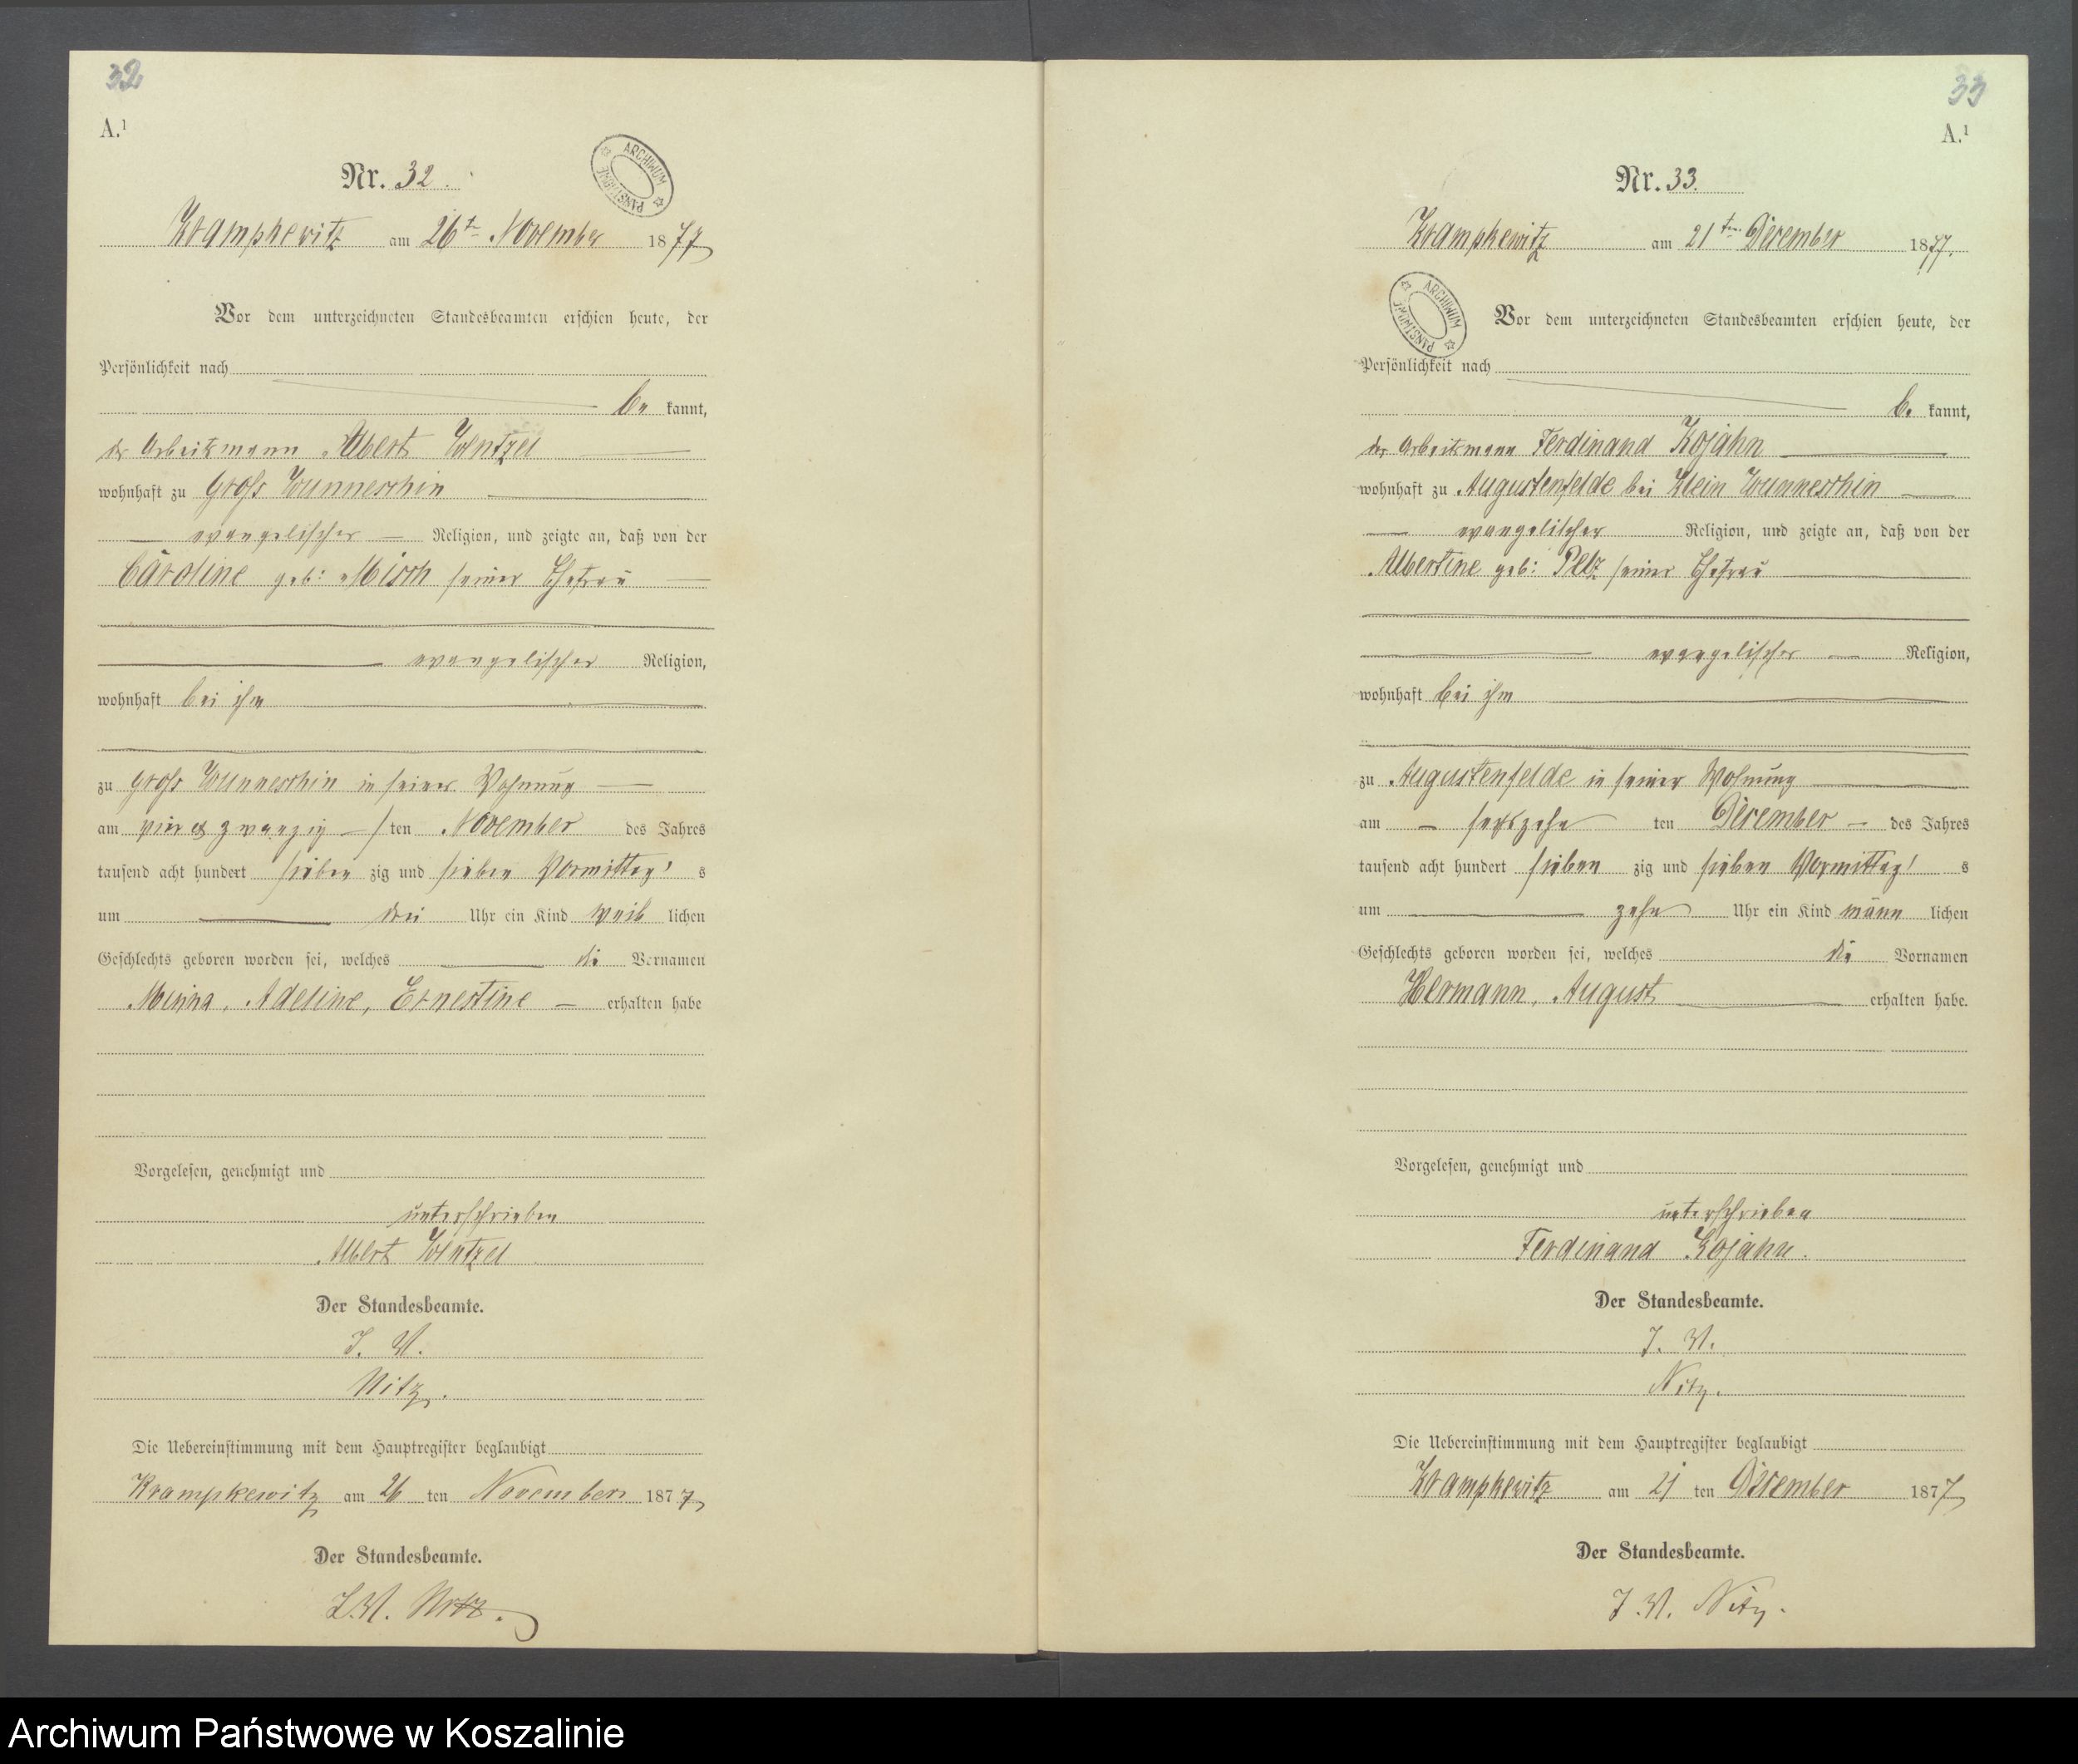 32
A.¹
Nr. 32.
ARCHIWUM PAŃSTWOWE
Krampkewitz am 26t November 1877
Vor dem unterzeichneten Standesbeamten erschien heute, der
Persönlichkeit nach
be kannt,
der Arbeitsmann Albert Wentzel
wohnhaft zu Gross Wunneschin
evangelischer Religion, und zeigte an, daß von der
Caroline geb: Misch seiner Ehefrau
evangelischer Religion,
wohnhaft bei ihm
zu Gross Wunneschin in seiner Wohnung
am vier & zwanzig sten November des Jahres
tausend acht hundert sieben zig und sieben Vormittag s
um drei Uhr ein Kind weib lichen
Geschlechts geboren worden sei, welches die Vornamen
Minna, Adeline, Ernestine erhalten habe
Vorgelesen, genehmigt und
unterschrieben
Albert Wentzel
Der Standesbeamte.
J. V.
Nitz.
Die Uebereinstimmung mit dem Hauptregister beglaubigt
Krampkewitz am 26 ten November 1877
Der Standesbeamte.
J. V. Nitz.
33
A.¹
Nr. 33.
Krampkewitz am 21ten December 1877.
ARCHIWUM PAŃSTWOWE
Vor dem unterzeichneten Standesbeamten erschien heute, der
Persönlichkeit nach
be kannt,
der Arbeitsmann Ferdinand Kojahn
wohnhaft zu Augustenfelde bei Klein Wunneschin
evangelischer Religion, und zeigte an, daß von der
Albertine geb: Peltz seiner Ehefrau
evangelischer Religion,
wohnhaft bei ihm
zu Augustenfelde in seiner Wohnung
am sechszehn ten December des Jahres
tausend acht hundert sieben zig und sieben Vormittag s
um zehn Uhr ein Kind männ lichen
Geschlechts geboren worden sei, welches die Vornamen
Hermann, August erhalten habe.
Vorgelesen, genehmigt und
unterschrieben
Ferdinand Kojahn.
Der Standesbeamte.
J. V.
Nitz.
Die Uebereinstimmung mit dem Hauptregister beglaubigt
Krampkewitz am 21 ten December 1877
Der Standesbeamte.
J. V. Nitz.
Archiwum Państwowe w Koszalinie